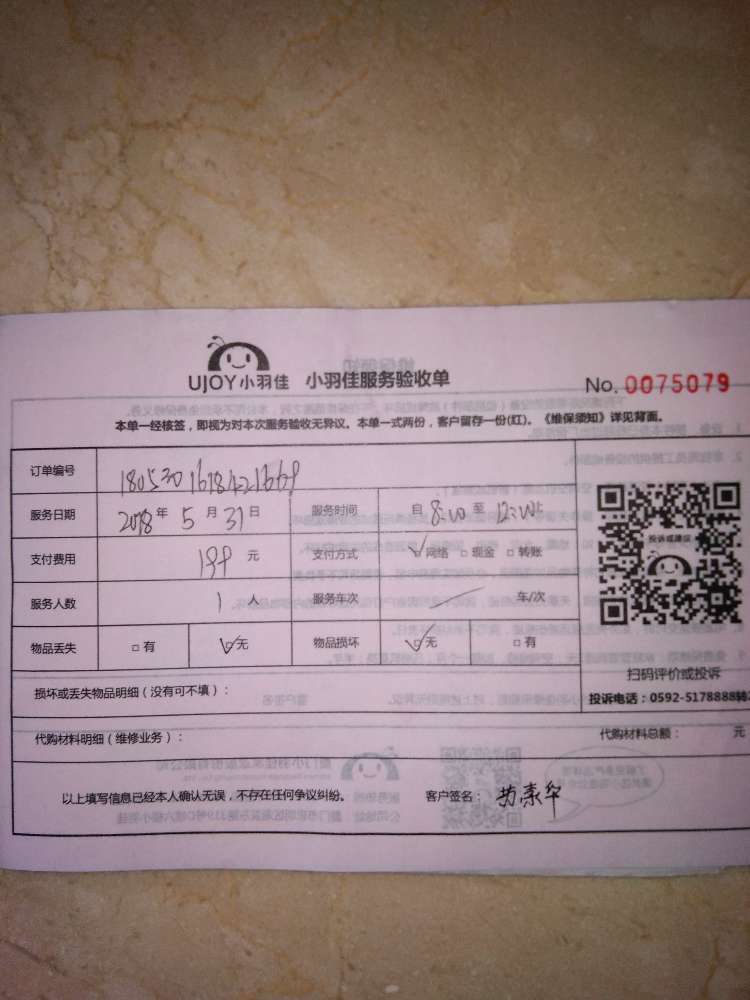 UJOY小羽佳 小羽佳服务验收单 No. 0075079
本单一经核签，即视为对本次服务验收无异议。本单一式两份，客户留存一份(红)。《维保须知》详见背面。
订单编号
服务日期 2018 年 5 月 31 日 服务时间 自 8:00 至 12:00止
支付费用 199 元 支付方式 ☑网络 □现金 □转账
服务人数 1 人 服务车次 车/次
物品丢失 □有 ☑无 物品损坏 ☑无 □有
投诉或建议
扫码评价或投诉
投诉电话：0592-5178888转2
损坏或丢失物品明细（没有可不填）：
代购材料明细（维修业务）： 代购材料总额： 元
以上填写信息已经本人确认无误，不存在任何争议纠纷。 客户签名：